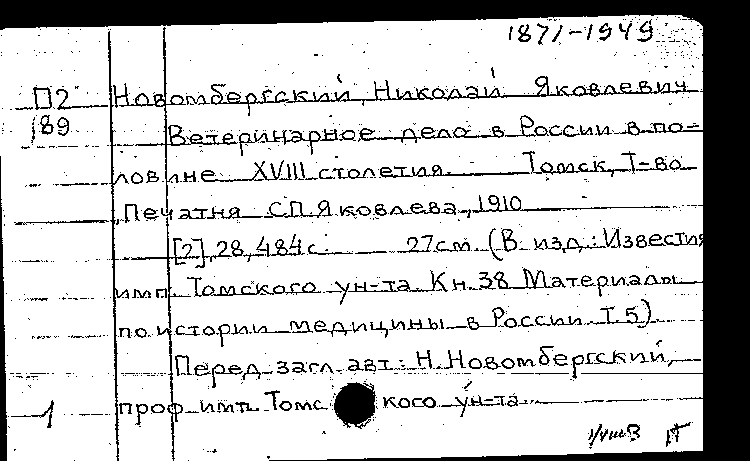 1871-1949
П2 Новомбергский, Николай Яковлевич
/89 Ветеринарное дело в России в по-
ловине XVIII столетия. Томск, Т-во
„Печатня С.П.Яковлева„, 1910
[2], 28, 484 с. 27см. (В изд.: Известия
имп. Томского ун-та. Кн. 38 Материалы
по истории медицины в России. Т. 5).
Перед загл. авт.: Н. Новомбергский,
1 проф. имп. Томского ун-та.